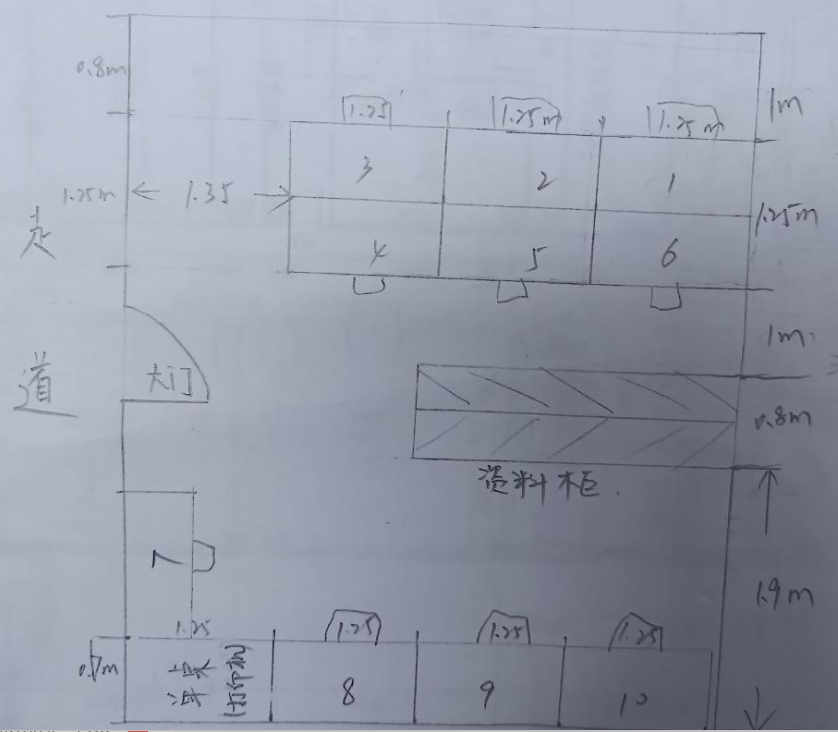 0.8m
1m
1.25
1.25m
1.25m
3
2
1
1.25m
1.35
1.25m
走
4
5
6
1m
道
大门
0.8m
资料柜
7
1.9m
1.25
1.25
1.25
1.25
0.7m
打印机
8
9
10